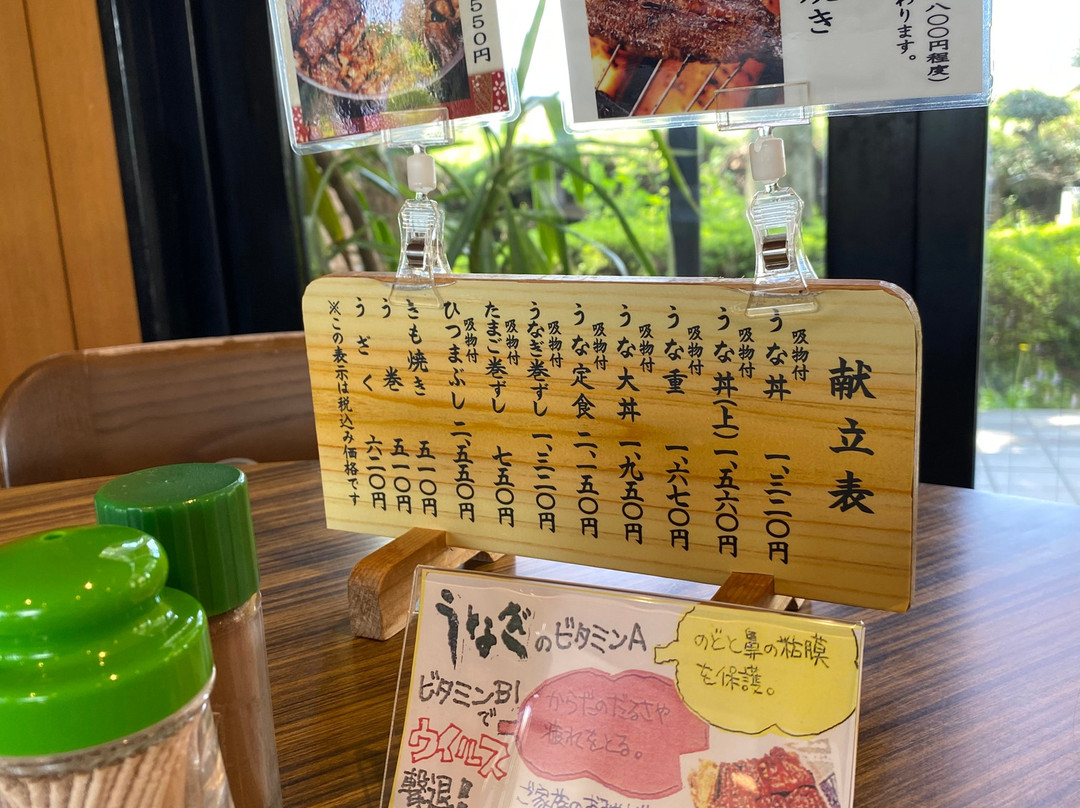 五五〇円
焼き
わります。
八〇〇円程度)
献立表
吸物付
うな丼 一、三二〇円
吸物付
うな丼(上) 一、五六〇円
吸物付
うな重 一、六七〇円
吸物付
うな大丼 一、九五〇円
吸物付
うな定食 二、一五〇円
うなぎ巻ずし 一、三二〇円
吸物付
たまご巻ずし 七五〇円
吸物付
ひつまぶし 二、五五〇円
きも焼き 五一〇円
う巻 五一〇円
うざく 六二〇円
※この表示は税込み価格です
うなぎのビタミンA
のどと鼻の粘膜
を保護。
ビタミンB1
で
ウイルス
撃退!
からだのだるさや
疲れをとる。